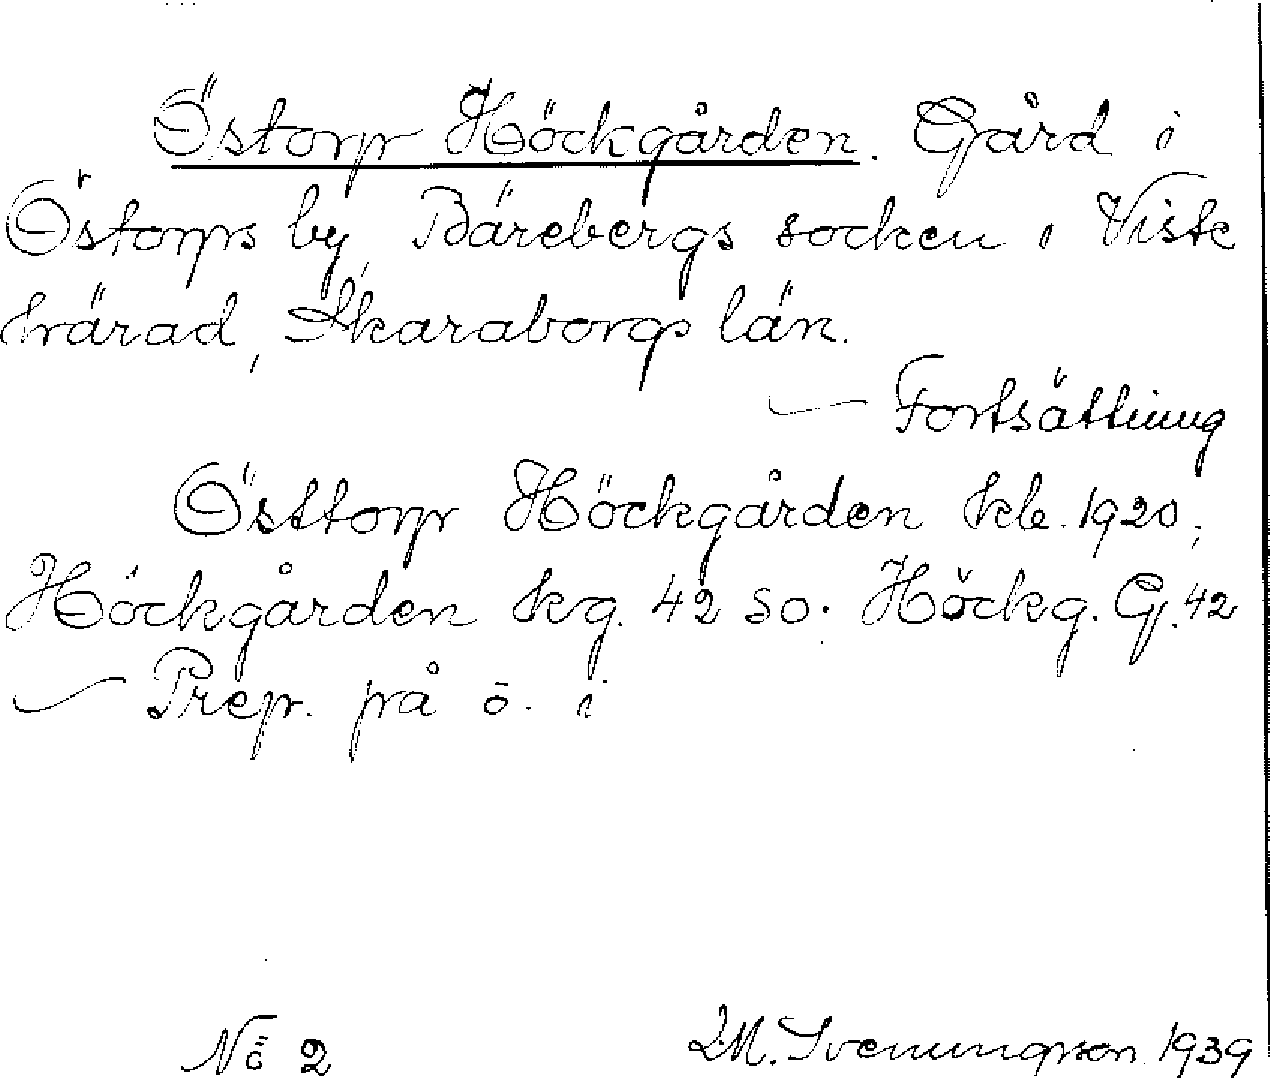 Östorp Höckgården. Gård i
Östorps by, Bärebergs socken i Viste
härad, Skaraborgs län.
— Fortsättning
Östtorp Höckgården kb. 1920,
Höckgården kg. 42 so. Höckg. G. 42
— Prep. på o. i
No 2 M. Svenungson 1939